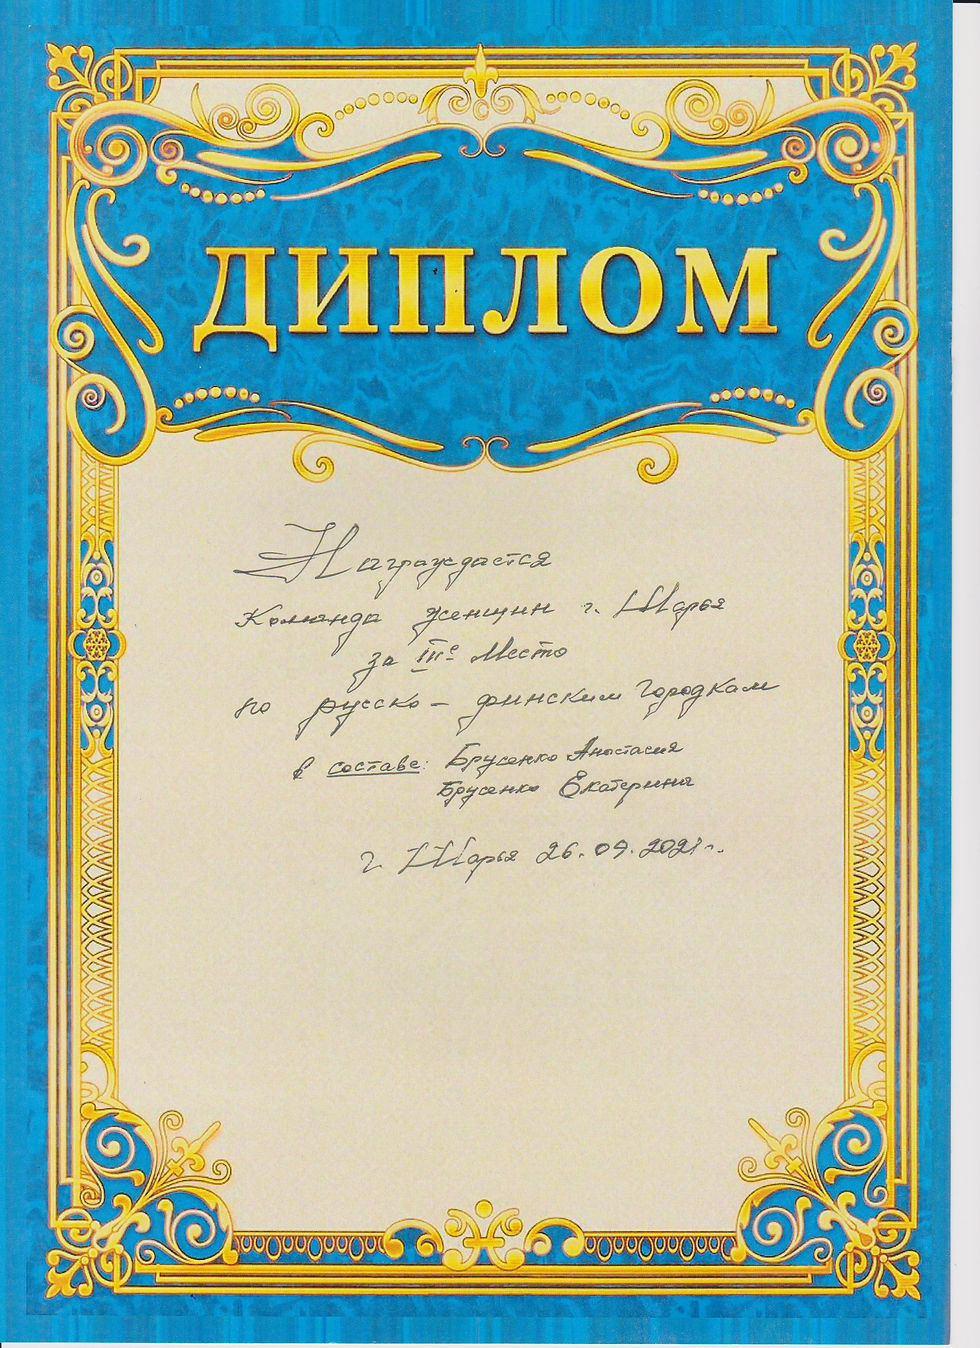 ДИПЛОМ
Награждается
Команда женщин г. Шарья
за III е место
по русско - финским городкам
в составе: Брусенко Анастасия
Брусенко Екатерина
г. Шарья 26.09.2021г.